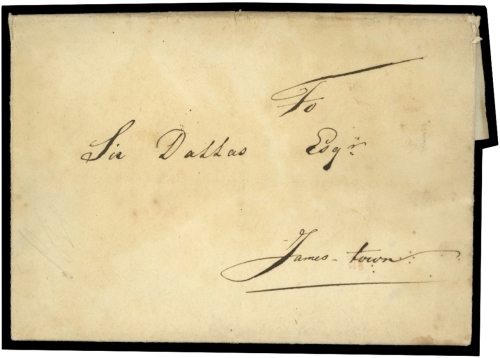 To
Sir Dallas Esqr.
James-town